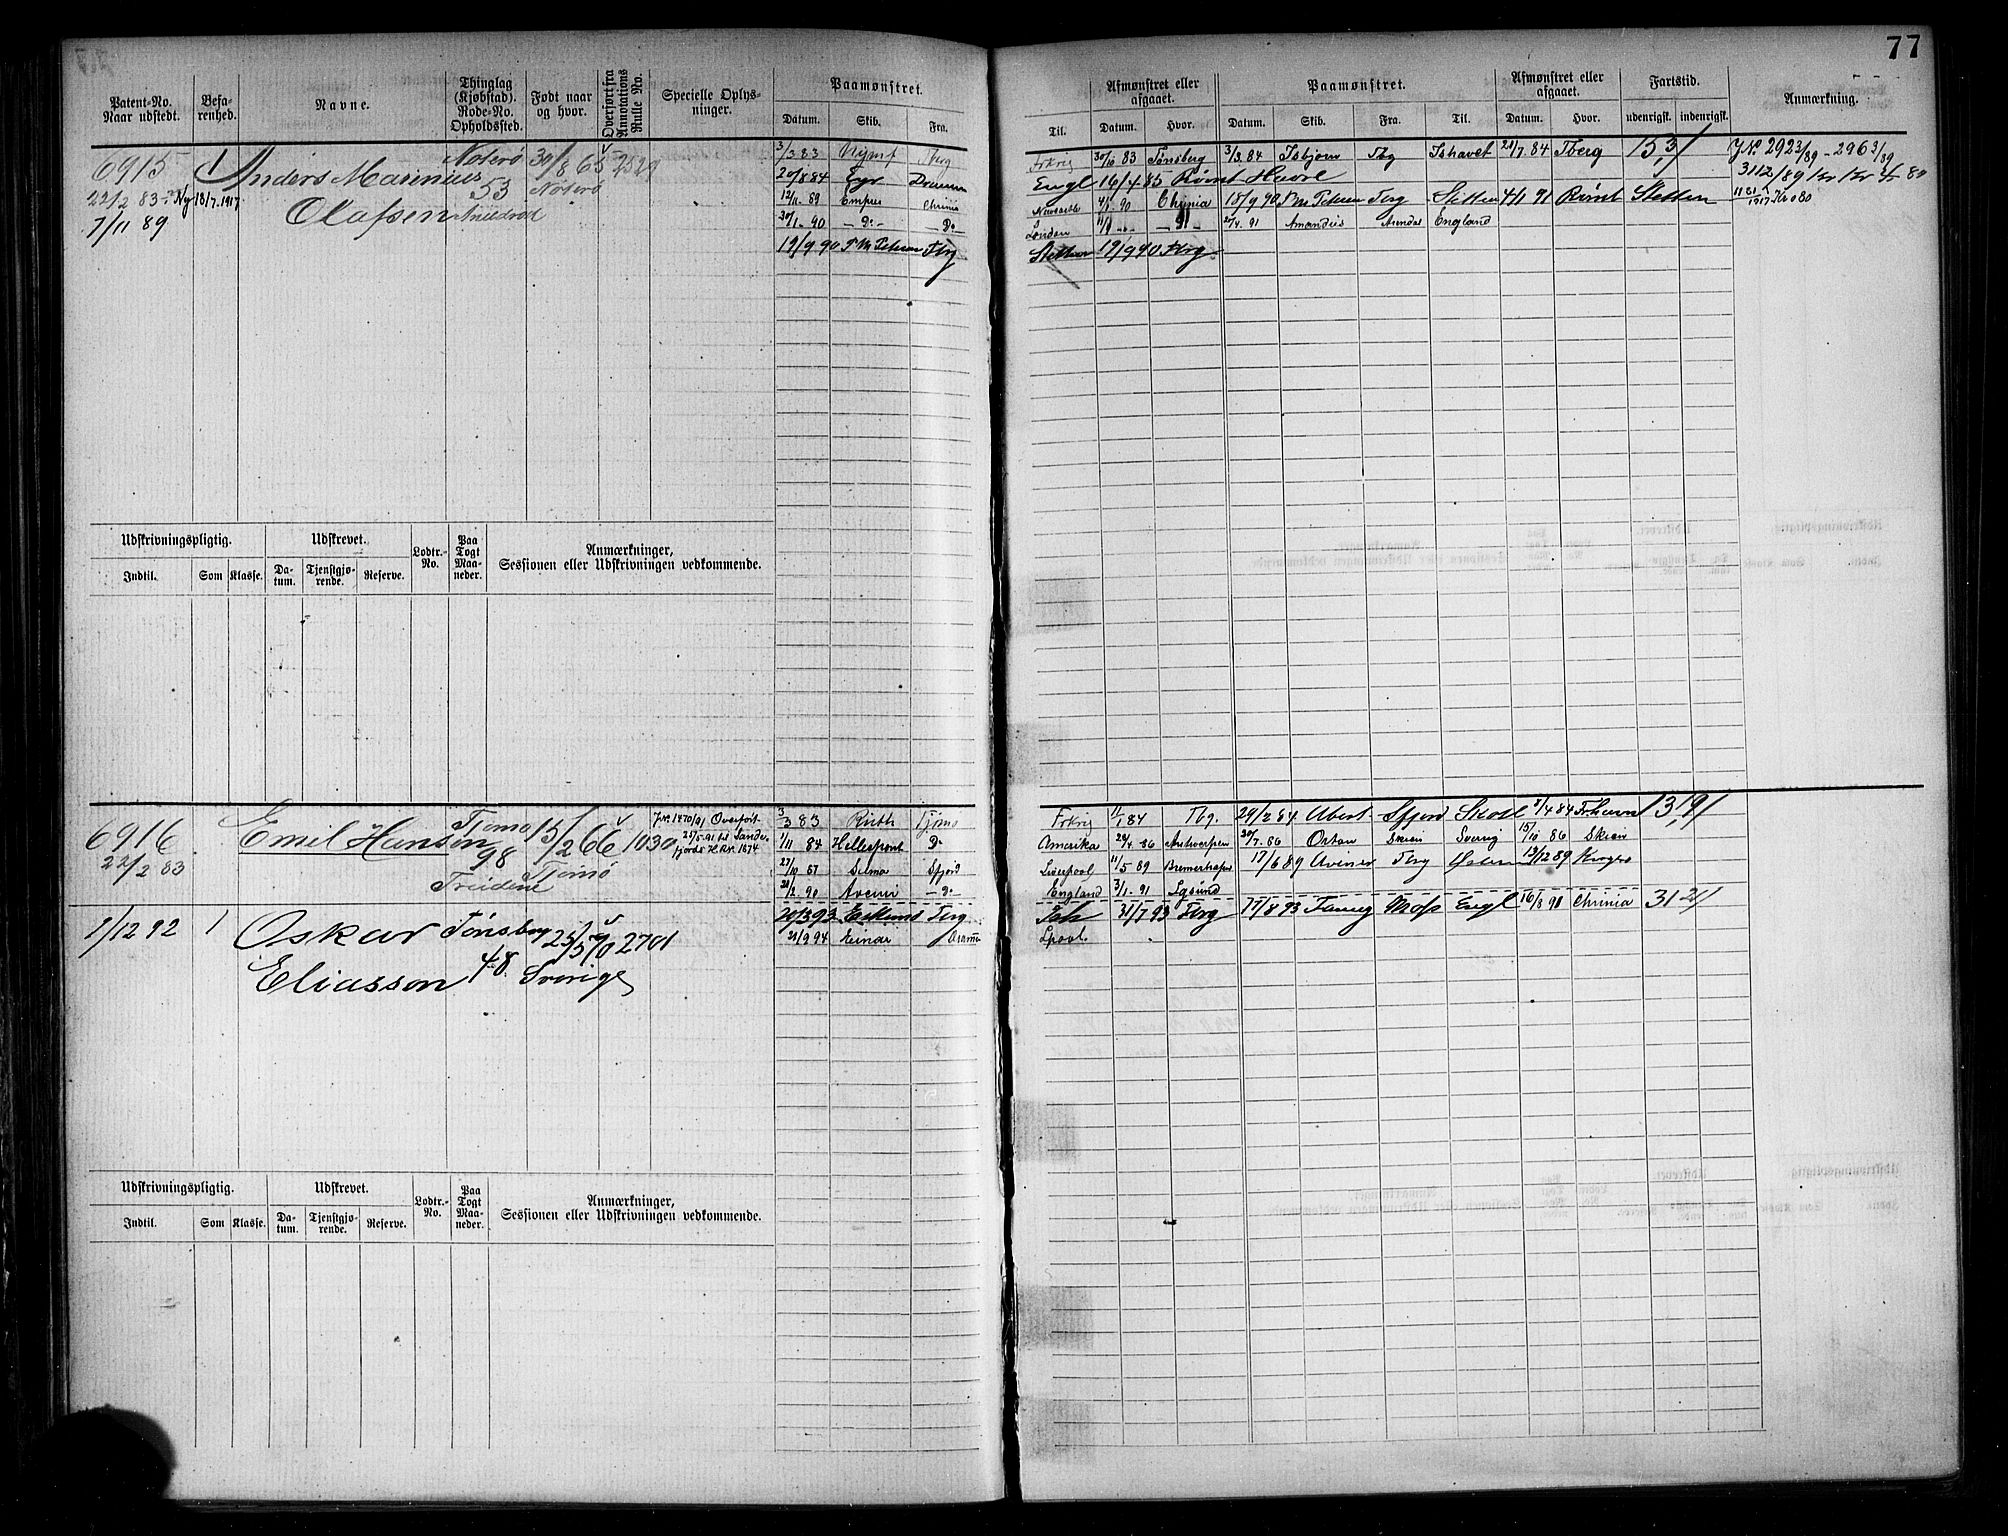 77
Patent-No. Naar udstedt.
Befarenhed.
Navne.
Thinglag (Kjøbstad). Rode-No. Opholdssted.
Født naar og hvor.
Overført fra Annotations Rulle No.
Specielle Oplysninger.
Paamønstret.
Datum. Skib. Fra.
Til.
Afmønstret eller afgaaet.
Datum. Hvor.
Paamønstret.
Datum. Skib. Fra. Til.
Afmønstret eller afgaaet.
Datum. Hvor.
Fartstid.
udenrigsk. indenrigsk.
Anmærkning.
6915 1 Anders Marinius Nøterø 30/8 65 2529
22/2 83 Ny 18/7.1917 Olafsen 53 Nøterø
7/11 89
3/3 83 Nymf Tberg
20/8 84 Drammen
12/11 89 Empres Chrinia
20/1 90 — Do — Do
19/9 90 P M Petersen Tbrg
30/10 83 Tønsberg 3/3 84 Isbjørn Tbg Ishavet 21/7 84 Tberg 15,3/
Engl 16/4 85 Rømt Havre
4/1 90 Chrinia 15/9 90 P M Petersen Tbrg Stettin 4/1 91 Rømt Stettin
London 20/4 91 Amandus Arendal England
Stettin 19/9 90 Tbrg
J.Nr. 2923/89 - 2963/89
3112/89
Udskrivningspligtig. Udskrevet. Lodtr.-No. Paa Togt Maaneder. Anmærkninger, Sessionen eller Udskrivningen vedkommende.
Indtil. Som Klasse. Datum. Tjenstgjørende. Reserve.
6916 Emil Hansen Tjømø 15/2 66 1030
22/2 83 98 Tjømø
J.Nr. 1470/91 Overført 25/5.91 til Sandefjords H.R.Nr. 1874
3/3 83 Ruth Tjømø
1/11 84 Hellespont Do
27/10 87 Selma Sfjord
28/2 90 Avenir — Do
1/1 84 Tbg. 29/2 84 Albert Sfjord Skotl 8/4 84 Frhavn 13,19/
Amerika 24/4 86 Antwerpen 20/7 86 Oskar Skien Sverig 15/10 86 Skien
Liverpool 11/5 89 Bremerhafen 17/6 89 Avenir Tbrg 13/12 89
England 3/1 91 Lgsund
1/12 92 1 Oskar Tønsberg 25/5 70 2701
Eliasson 48 Sverige
20/3 93 Tbrg
21/9 94 Einar
31/7 93 Tbrg 17/8 93 Moss Engl Chrinia 31 21/
Lpool
Udskrivningspligtig. Udskrevet. Lodtr.-No. Paa Togt Maaneder. Anmærkninger, Sessionen eller Udskrivningen vedkommende.
Indtil. Som Klasse. Datum. Tjenstgjørende. Reserve.